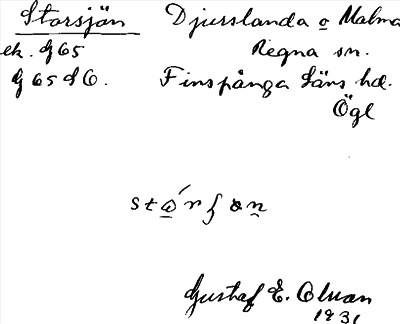 Storsjön Djurslanda o Malma
ek. G65 Regna sn.
G 65 SO. Finspånga läns hd.
Ögl
Gustaf E. Olsson
1931